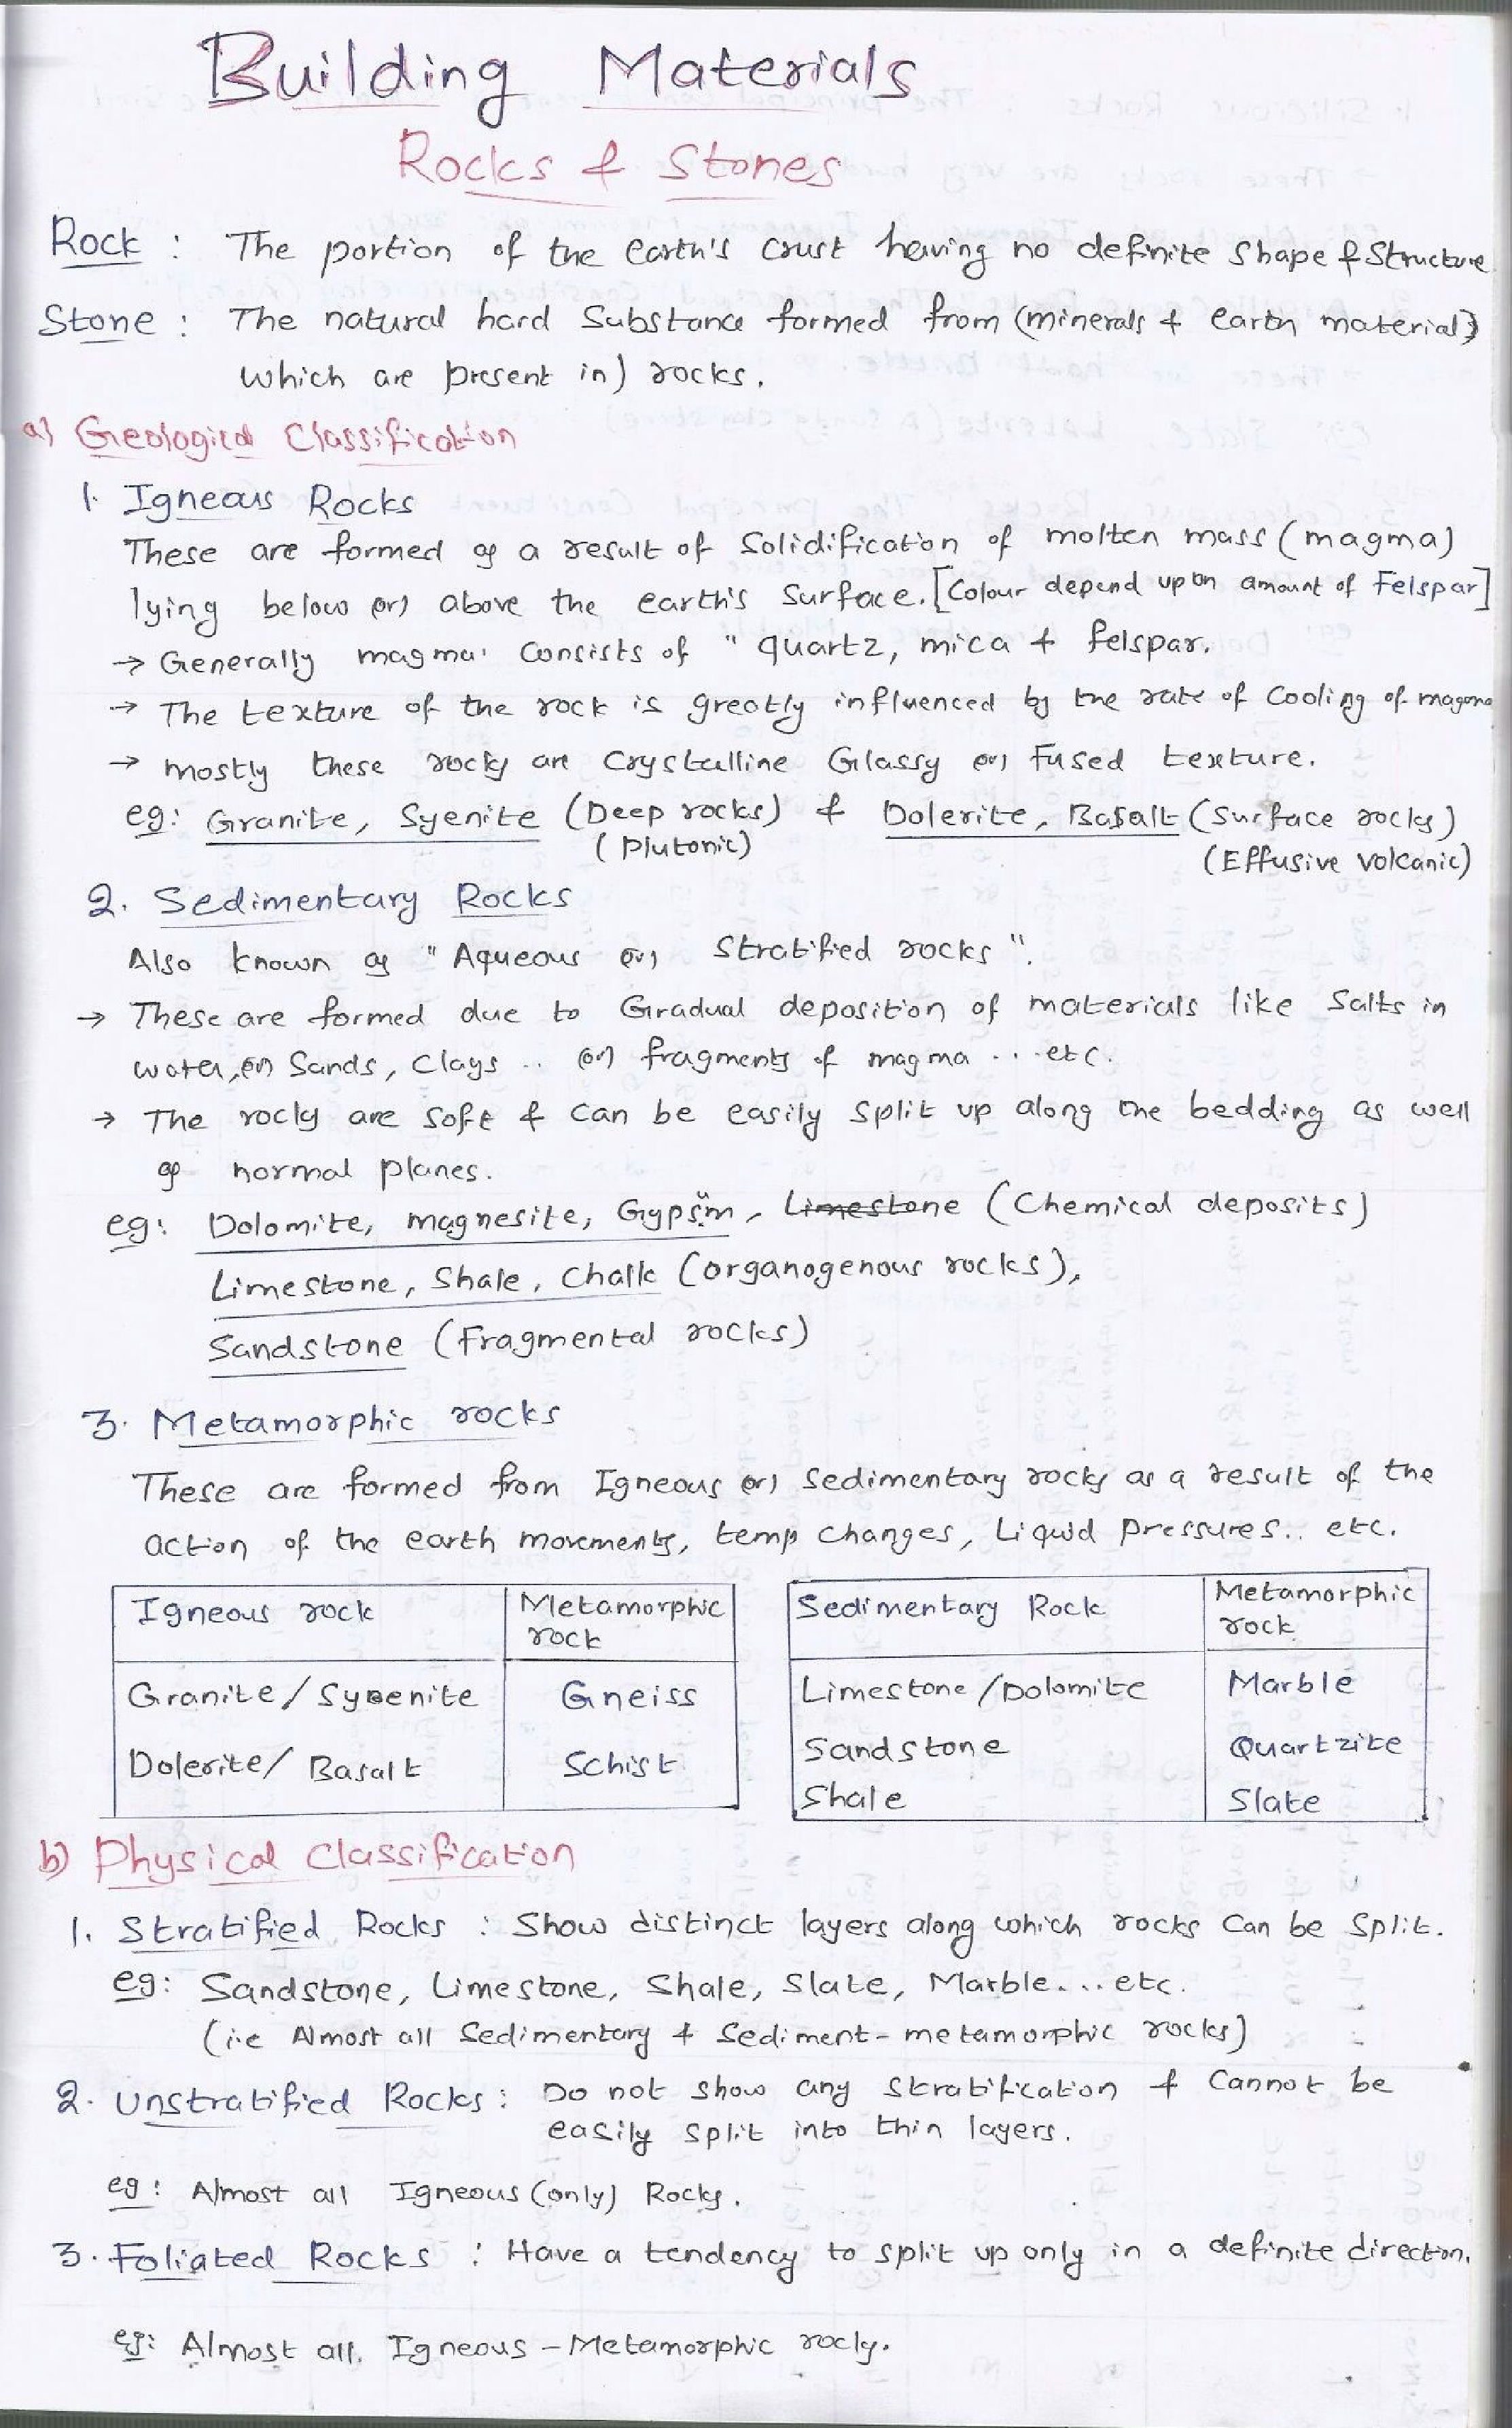 Building Materials
Rocks & Stones
Rock : The portion of the earth's crust having no definite shape & structure
Stone : The natural hard substance formed from (minerals & earth material)
which are present in) rocks.
a) Geological Classification
1. Igneous Rocks
These are formed as a result of solidification of molten mass (magma)
lying below (or) above the earth's surface. [Colour depend upon amount of Felspar]
→ Generally magma consists of " quartz, mica & felspar.
→ The texture of the rock is greatly influenced by the rate of cooling of magma
→ mostly these rocks are crystalline Glassy (or) fused texture.
eg: Granite, Syenite (Deep rocks) & Dolerite, Basalt (Surface rocks)
(Plutonic) (Effusive volcanic)
2. Sedimentary Rocks
Also known as "Aqueous (or) Stratified rocks".
→ These are formed due to Gradual deposition of materials like salts in
water, (or) sands, clays .. (or) fragments of magma ... etc.
→ The rocks are soft & can be easily split up along the bedding as well
as normal planes.
eg: Dolomite, magnesite, Gypsum, Limestone (Chemical deposits)
Limestone, Shale, Chalk (organogenous rocks),
Sandstone (Fragmental rocks)
3. Metamorphic rocks
These are formed from Igneous (or) Sedimentary rocks as a result of the
action of the earth movements, temp changes, Liquid pressures.. etc.
Igneous rock Metamorphic rock
Granite / Syenite Gneiss
Dolerite / Basalt Schist
Sedimentary Rock Metamorphic rock
Limestone / Dolomite Marble
Sandstone Quartzite
Shale Slate
b) Physical classification
1. Stratified Rocks : Show distinct layers along which rocks can be split.
eg: Sandstone, Limestone, Shale, Slate, Marble... etc.
(i.e Almost all Sedimentary & Sediment-metamorphic rocks)
2. Unstratified Rocks : Do not show any stratification & cannot be
easily split into thin layers.
eg: Almost all Igneous (only) Rocks.
3. Foliated Rocks : Have a tendency to split up only in a definite direction.
eg: Almost all. Igneous - Metamorphic rocks.